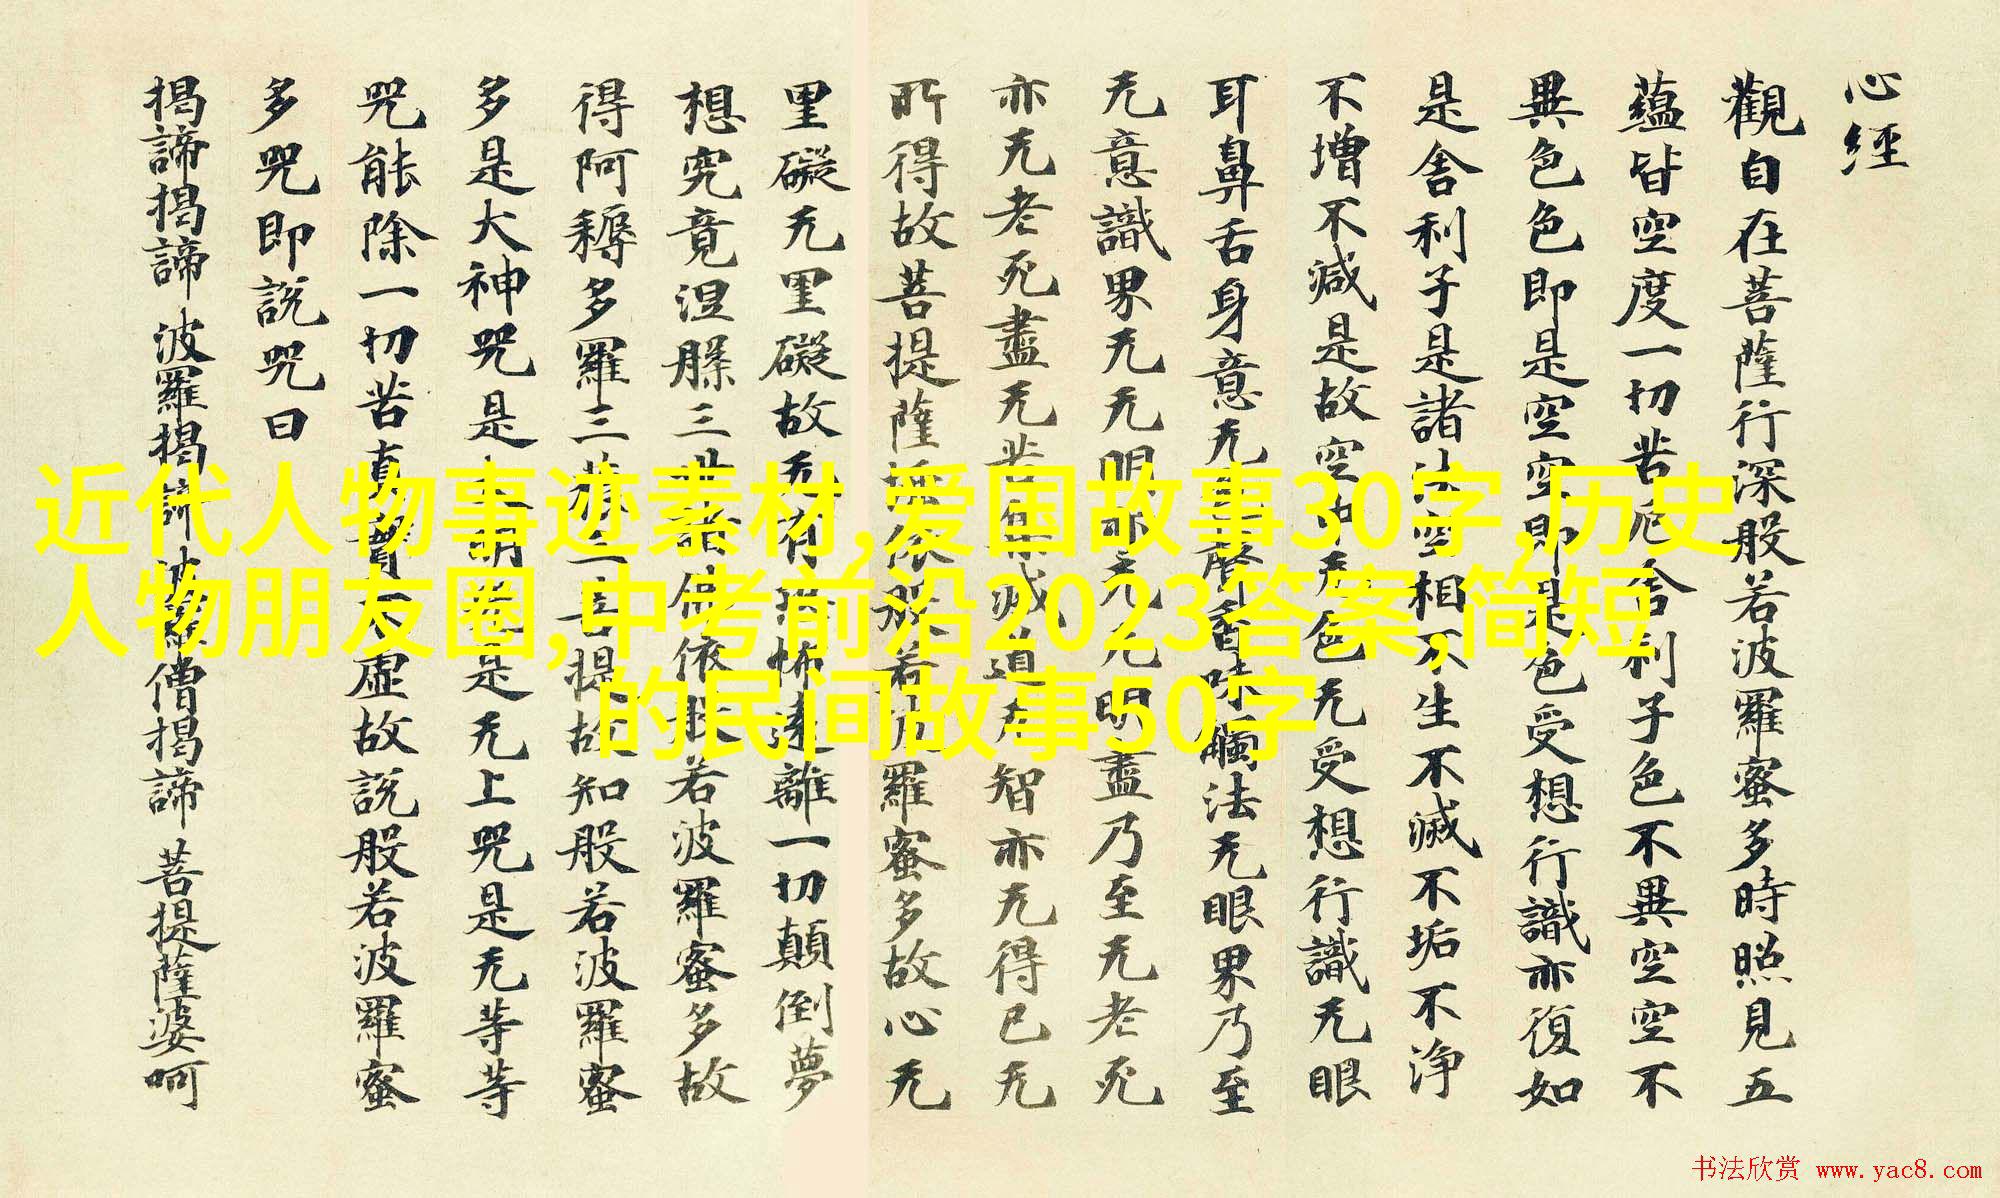 心經
觀自在菩薩行深般若波羅蜜多時照見五
蘊皆空度一切苦厄舍利子色不異空空不
異色色即是空空即是色受想行識亦復如
是舍利子是諸法空相不生不滅不垢不淨
不增不減是故空中无色无受想行識无眼
耳鼻舌身意无色聲香味觸法无眼界乃至
无意識界无无明亦无无明盡乃至无老死
亦无老死盡无苦集滅道无智亦无得已无
所得故菩提薩埵依般若波羅蜜多故心无
罣礙无罣礙故无有恐怖遠離一切顛倒夢
想究竟涅槃三世諸佛依般若波羅蜜多故
得阿耨多羅三藐三菩提故知般若波羅蜜
多是大神咒是大明咒是无上咒是无等等
咒能除一切苦真實不虛故說般若波羅蜜
多咒即說咒曰
揭諦揭諦 波羅揭諦 波羅僧揭諦 菩提薩婆呵
近代人物事迹素材,爱国故事30字,历史
人物朋友圈,中考前沿2023答案,简短
的民间故事50字
书法欣赏 www.yac8.com